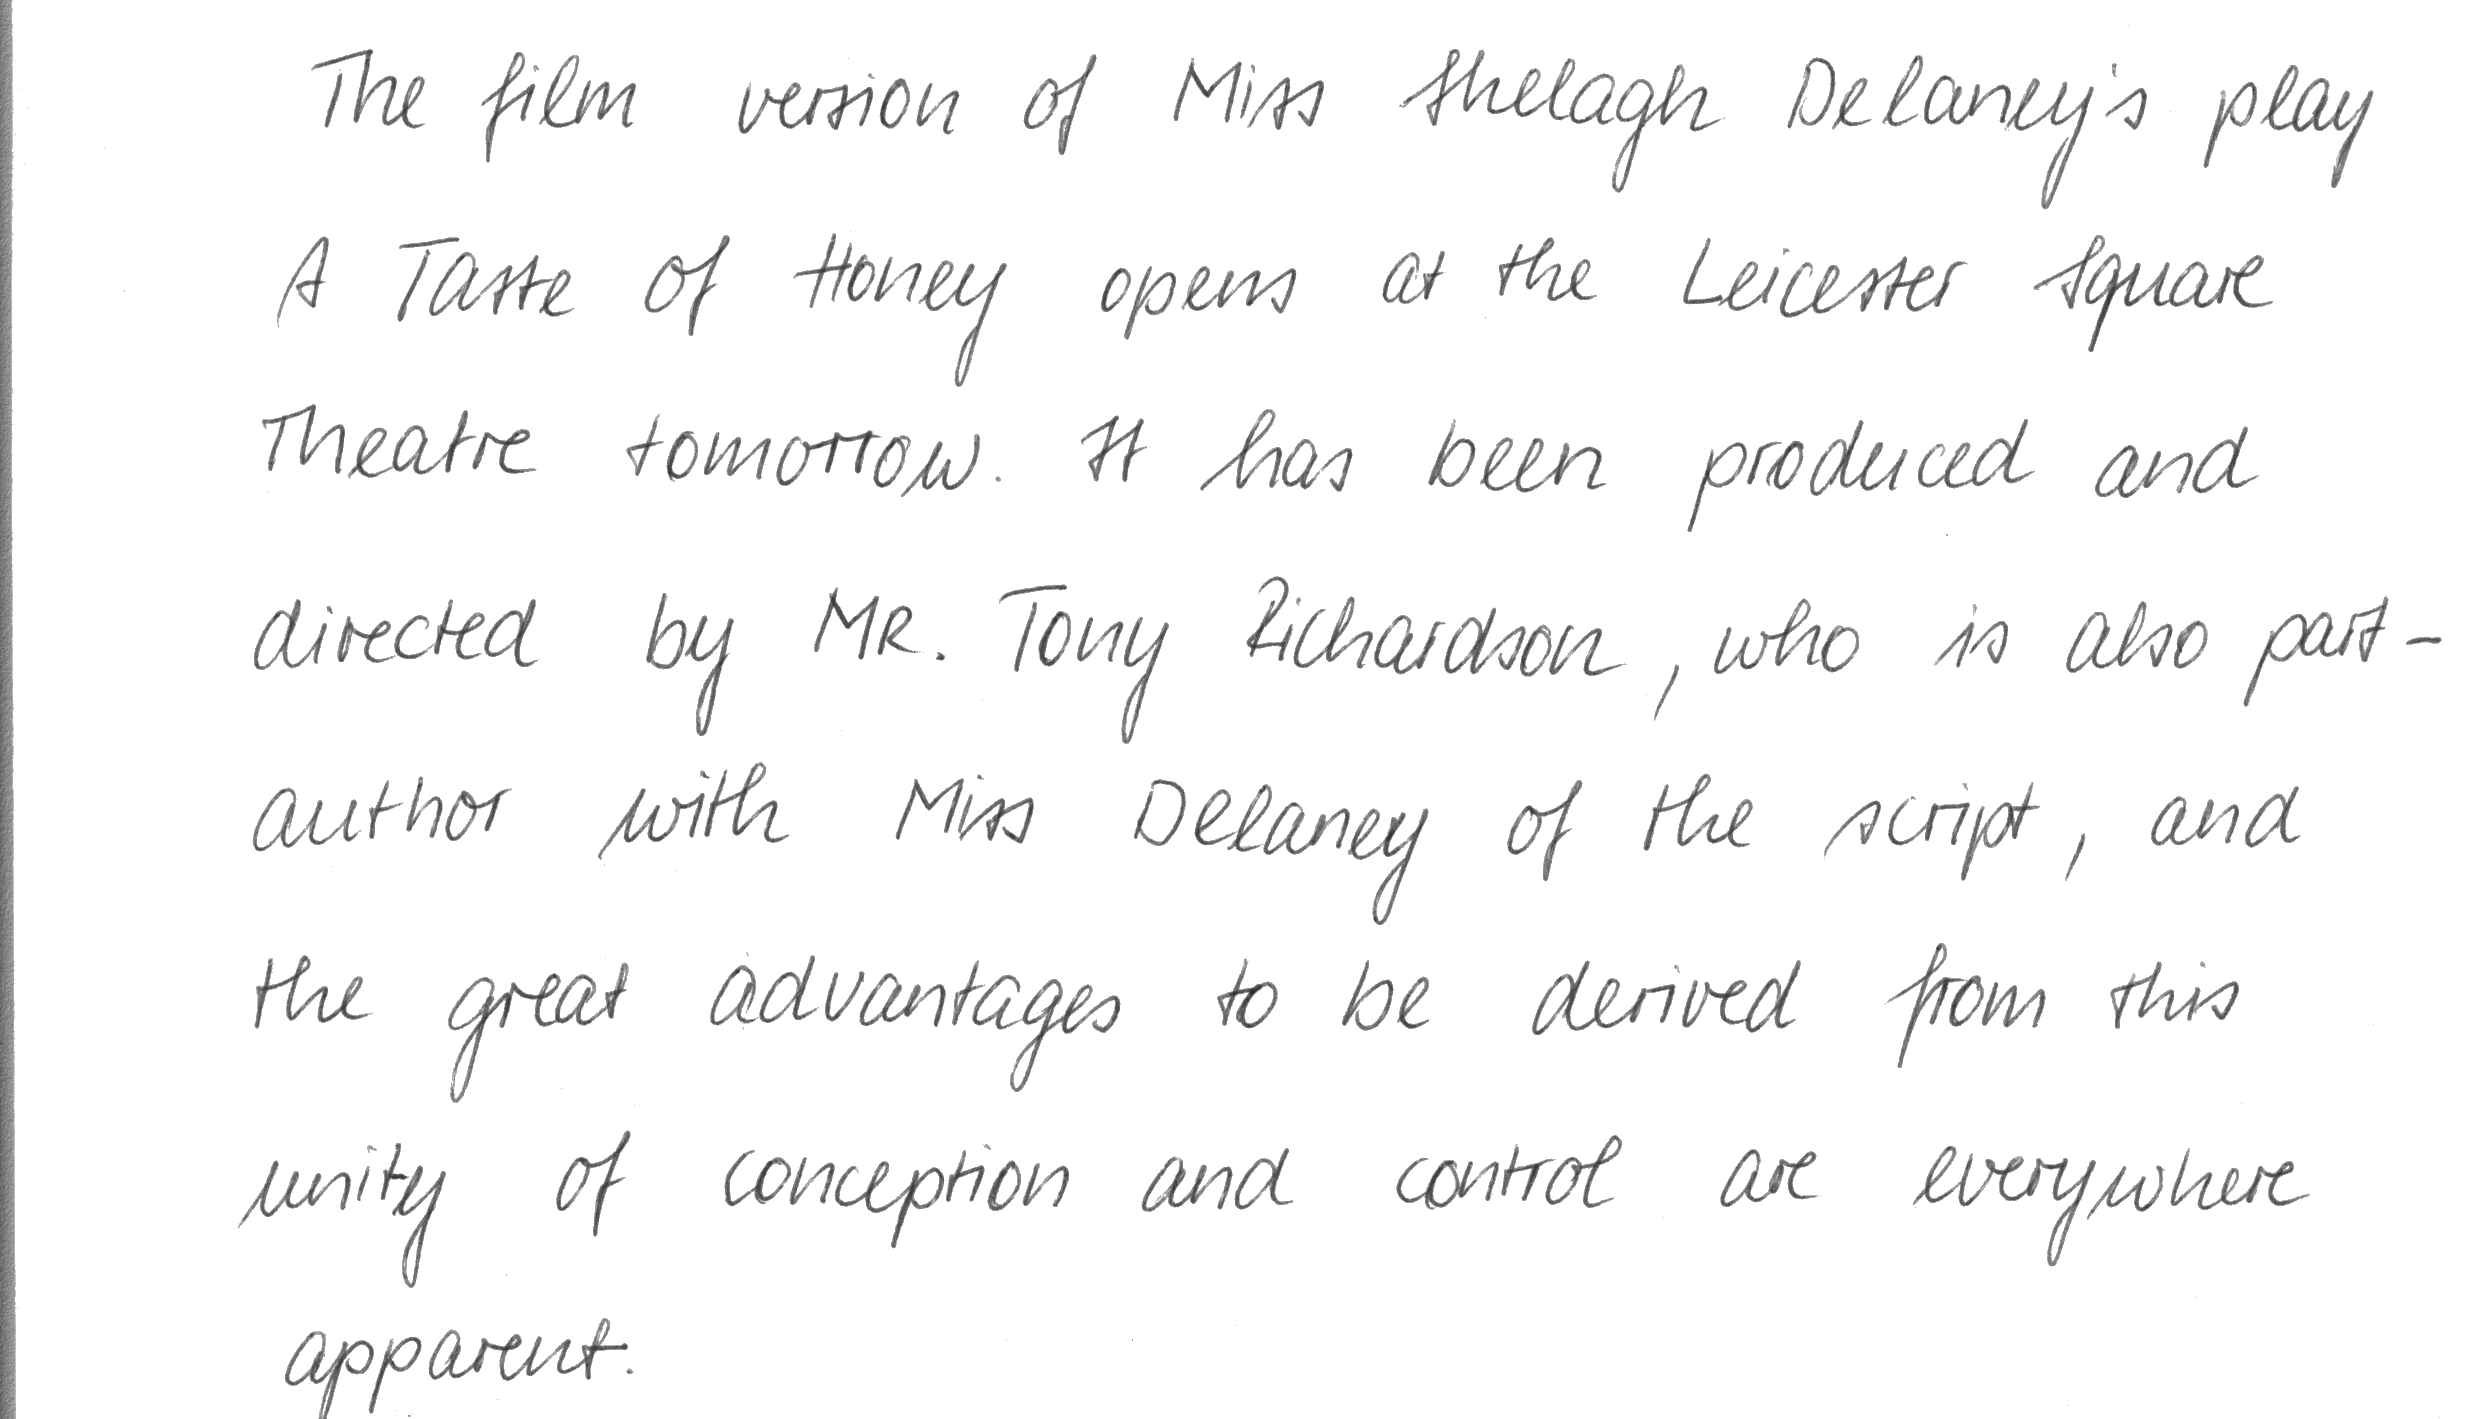 The film version of Miss Shelagh Delaney's play
A Taste of Honey opens at the Leicester Square
Theatre tomorrow. It has been produced and
directed by Mr. Tony Richardson, who is also part-
author with Miss Delaney of the script, and
the great advantages to be derived from this
unity of conception and control are everywhere
apparent.